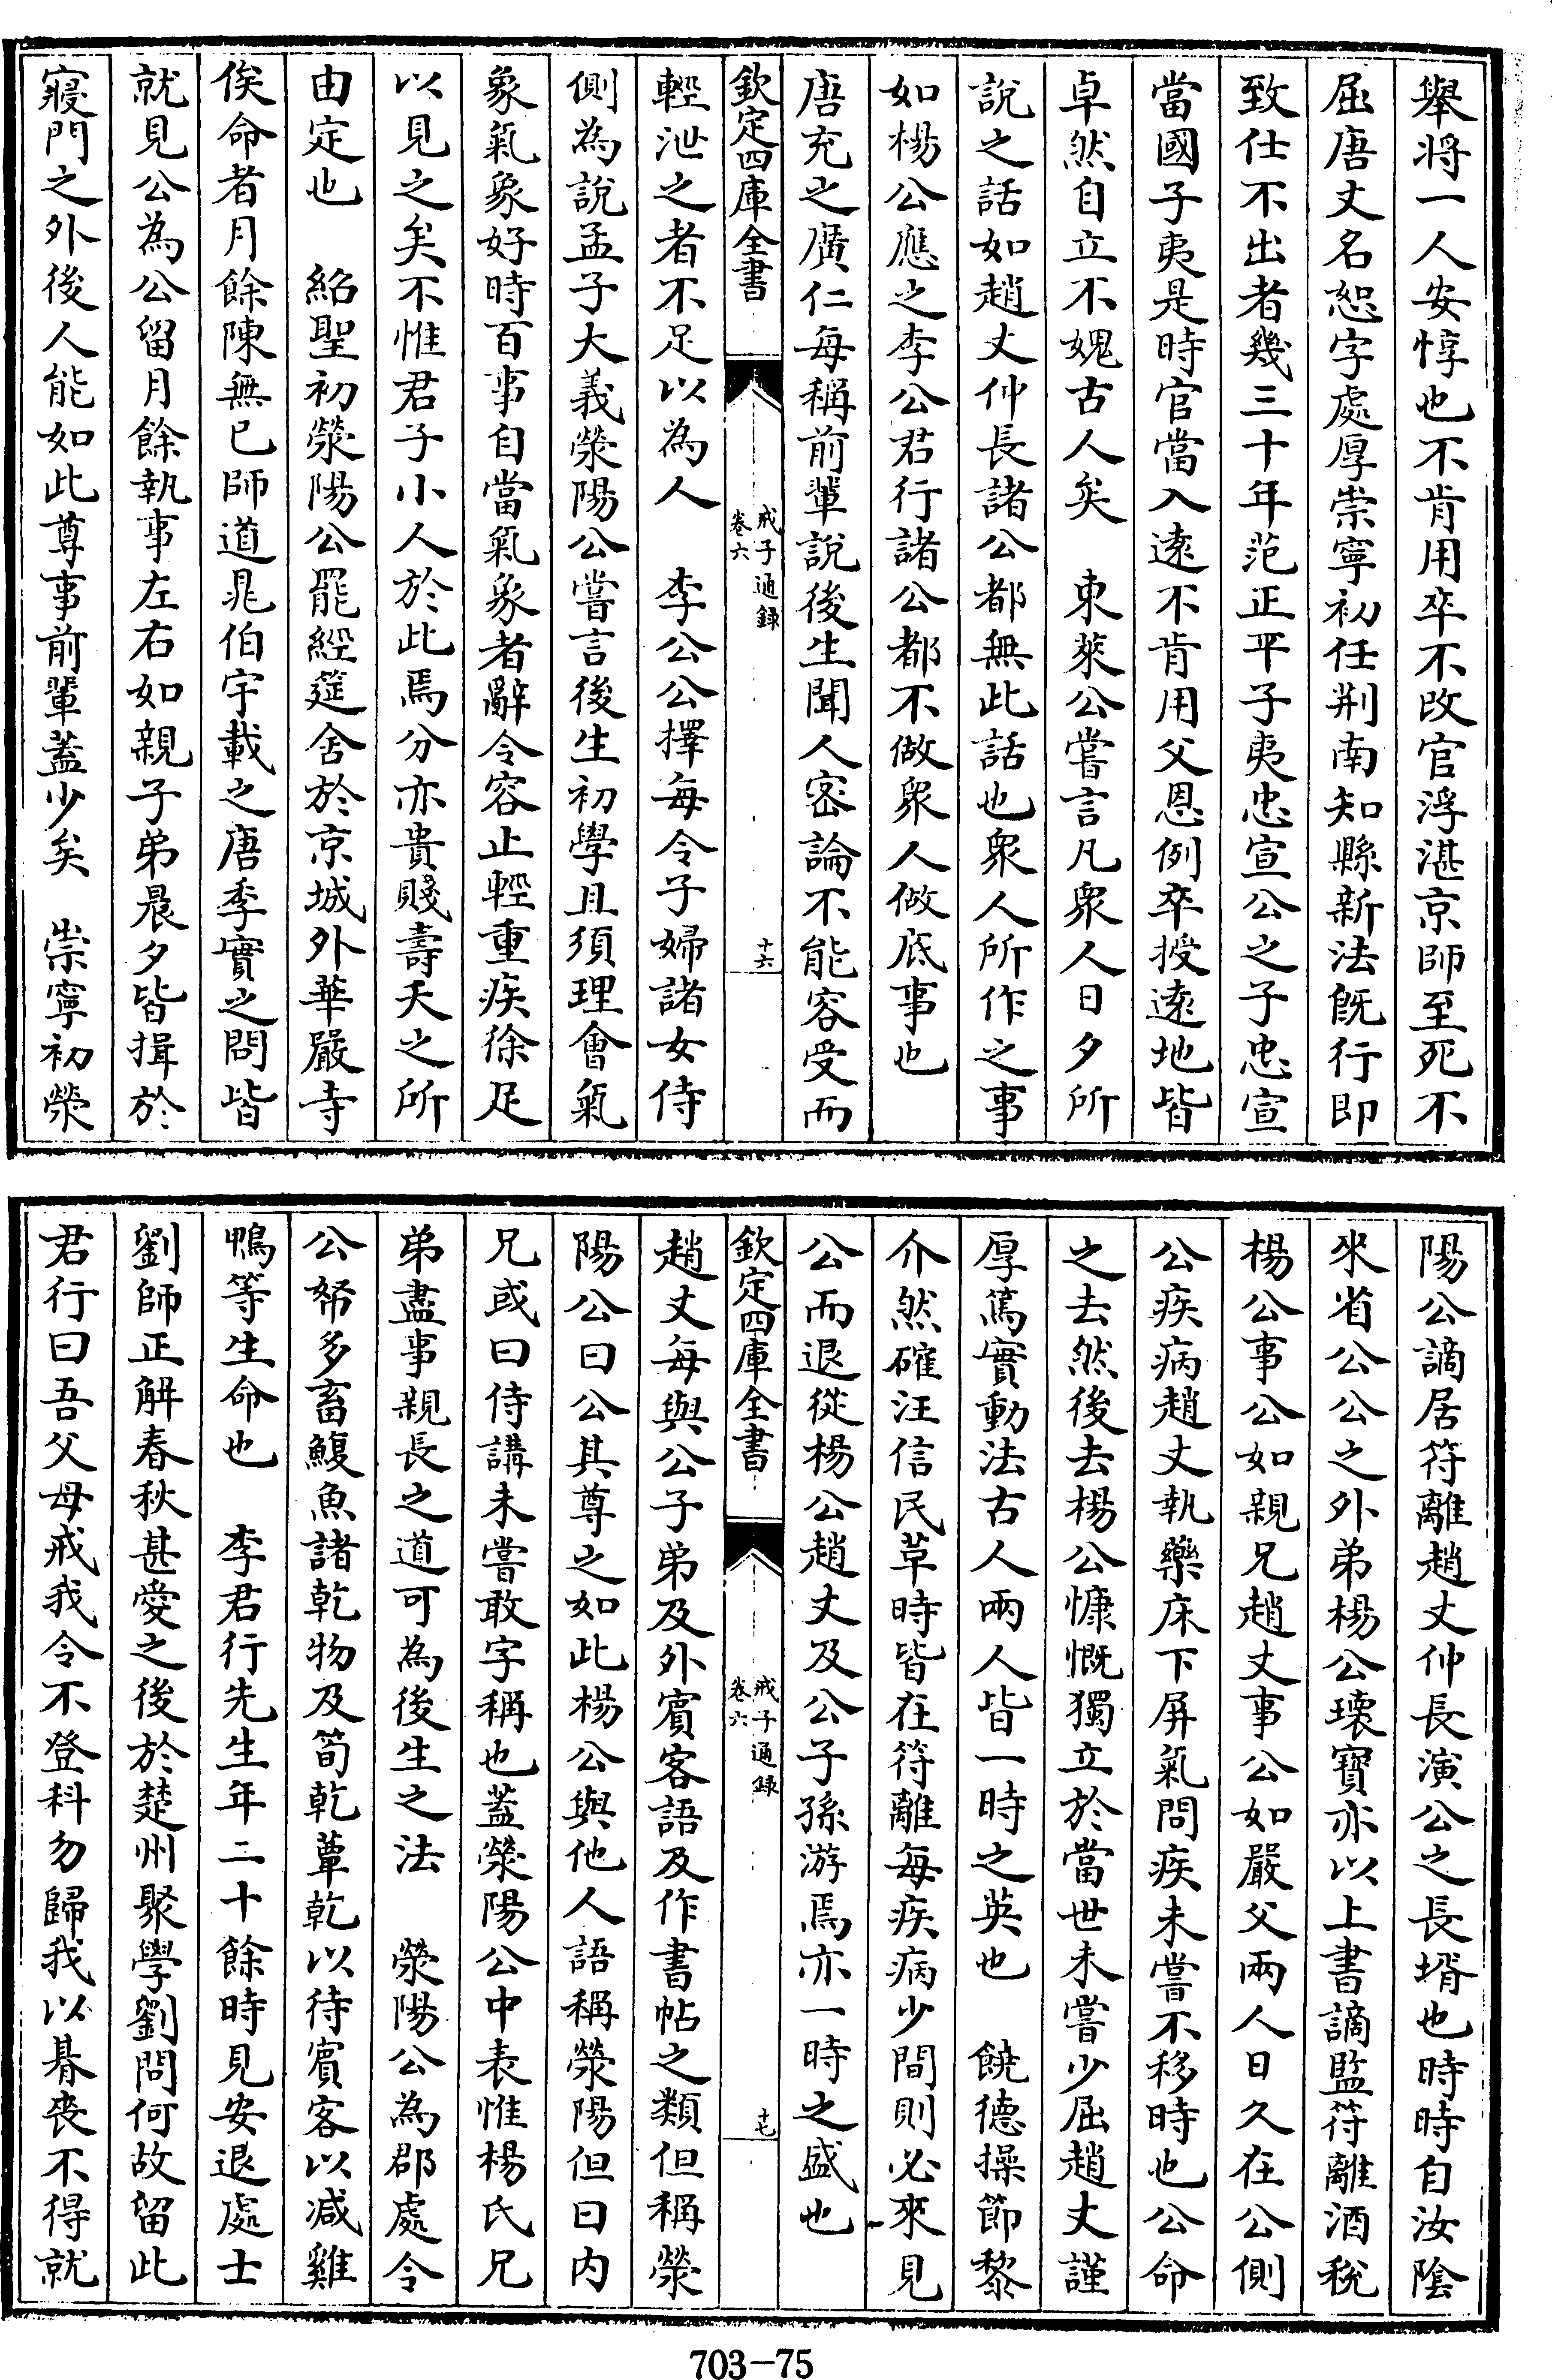 舉將一人安惇也不肯用卒不改官浮湛京師至死不
屈唐丈名恕字處厚崇寧初任荆南知縣新法旣行即
致仕不出者幾三十年范正平子夷忠宣公之子忠宣
當國子夷是時官當入逺不肯用父恩例卒授逺地皆
卓然自立不媿古人矣　東萊公嘗言凡衆人日夕所
說之話如趙丈仲長諸公都無此話也衆人所作之事
如楊公應之李公君行諸公都不做衆人做底事也
唐充之廣仁每稱前輩說後生聞人密論不能容受而
欽定四庫全書　戒子通録　卷六　十六
輕泄之者不足以為人　李公公擇每令子婦諸女侍
側為說孟子大義滎陽公嘗言後生初學且須理會氣
象氣象好時百事自當氣象者辭令容止輕重疾徐足
以見之矣不惟君子小人於此焉分亦貴賤壽夭之所
由定也　紹聖初滎陽公罷經筵舍於京城外華嚴寺
俟命者月餘陳無已師道晁伯宇載之唐季實之問皆
就見公為公留月餘執事左右如親子弟晨夕皆揖於
寢門之外後人能如此尊事前輩蓋少矣　崇寧初滎
陽公謫居符離趙丈仲長演公之長壻也時時自汝隂
來省公公之外弟楊公瓌寶亦以上書謫監符離酒稅
楊公事公如親兄趙丈事公如嚴父兩人日久在公側
公疾病趙丈執藥床下屏氣問疾未嘗不移時也公命
之去然後去楊公慷慨獨立於當世未嘗少屈趙丈謹
厚篤實動法古人兩人皆一時之英也　饒德操節黎
介然確汪信民革時皆在符離每疾病少間則必來見
公而退從楊公趙丈及公子孫游焉亦一時之盛也
欽定四庫全書　戒子通録　卷六　十七
趙丈每與公子弟及外賓客語及作書帖之類但稱滎
陽公曰公其尊之如此楊公與他人語稱滎陽但曰内
兄或曰侍講未嘗敢字稱也蓋滎陽公中表惟楊氏兄
弟盡事親長之道可為後生之法　滎陽公為郡處令
公帑多畜鰒魚諸乾物及筍乾蕈乾以待賓客以减雞
鴨等生命也　李君行先生年二十餘時見安退處士
劉師正解春秋甚愛之後於楚州聚學劉問何故留此
君行曰吾父母戒我令不登科勿歸我以朞喪不得就
703-75